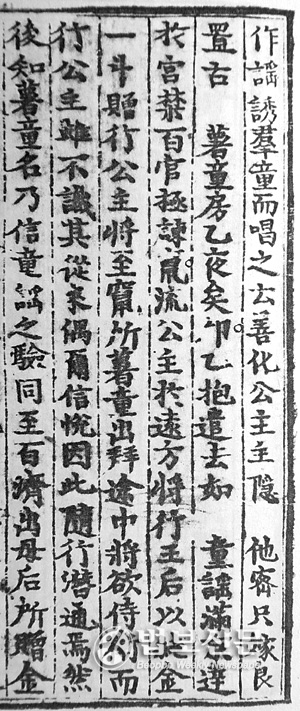 作謡誘羣童而唱之云善化公主主隠 他宻只嫁良
置古 薯童房乙夜矣夘乙抱遣去如 童謡滿京達
於宮禁百官極諫竄流公主於遠方將行王后以純金
一斗贈行公主將至竄所薯童出拜途中將欲侍衛而
行公主雖不識其從來偶爾信悅因此隨行潜通焉然
後知薯童名乃信童謡之驗同至百濟出母后所贈金
법보신문
Beopbo Weekly Newspaper